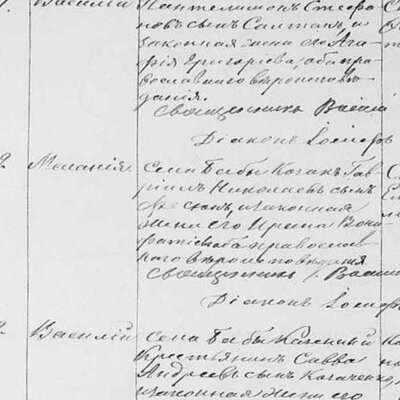 Василій
Пантелимонъ Стефа
новъ сынъ Салтанъ, и
законная жена его Ага
фія Григорова, оба пра
вославнаго вѣроисповѣ
данія.
Священникъ Васил
Діаконъ Іосифъ
2 Меланія. Села Бабы Козакъ Гав
ріилъ Николаевъ сынъ
законная
жена его Ирина Вони
фатіева оба православ
наго вѣроисповѣданія
Священникъ Васил
Діаконъ Іосифъ
2 Василій Села Бабы Казенный
Крестьянинъ Савва
Андреевъ сынъ Козаченко,
законная жена его